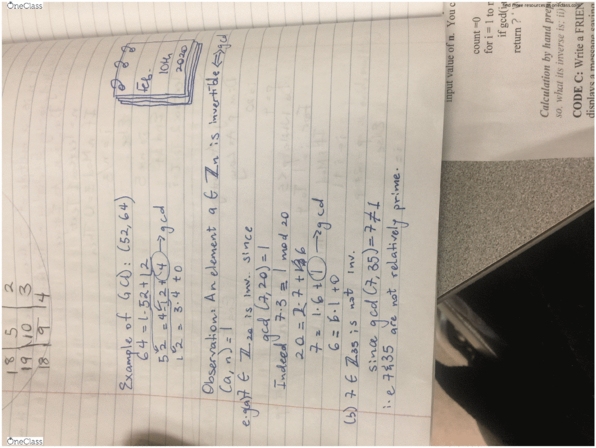 OneClass
18 | 5 | 2
19 | 10 | 3
18 | 9 | 4
Feb.
10th
2020
Example of GCD: (52, 64)
64 = 1·52 + 12
52 = 4·12 + 4 → gcd
12 = 3·4 + 0
Observation: An element a ∈ ℤn is invertible ⟺ gcd
(a, n) = 1
e.g (a) 7 ∈ ℤ20 is inv. since
gcd (7, 20) = 1
Indeed 7·3 ≡ 1 mod 20
20 = 2·7 + 6
7 = 1·6 + 1 → gcd
6 = 6·1 + 0
(b) 7 ∈ ℤ35 is not inv.
since gcd (7, 35) = 7 ≠ 1
i.e 7 & 35 are not relatively prime.
input value of n. You c
count =0
for i = 1 to n
if gcd(
return ?
Calculation by hand prep
so, what its inverse is; ii)
CODE C: Write a FRIEN
displays a message
OneClass